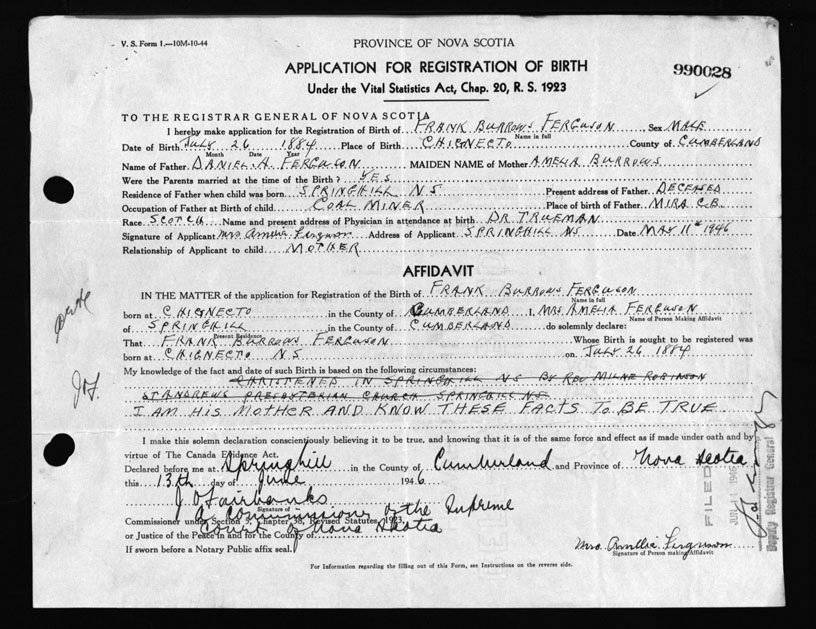 V. S. Form 1.—10M-10-44
PROVINCE OF NOVA SCOTIA
APPLICATION FOR REGISTRATION OF BIRTH
990028
Under the Vital Statistics Act, Chap. 20, R. S. 1923
TO THE REGISTRAR GENERAL OF NOVA SCOTIA
I hereby make application for the Registration of Birth of FRANK BURROWS FERGUSON Sex MALE
Name in full
Date of Birth JULY 26 1884 Place of Birth CHIGNECTO County of CUMBERLAND
Month Date Year
Name of Father DANIEL A FERGUSON MAIDEN NAME of Mother AMELIA BURROWS
Were the Parents married at the time of the Birth? YES
Residence of Father when child was born SPRINGHILL N.S Present address of Father DECEASED
Occupation of Father at Birth of child COAL MINER Place of birth of Father MIRA C.B.
Race SCOTCH Name and present address of Physician in attendance at birth DR TRUEMAN
Signature of Applicant Mrs Amelia Ferguson Address of Applicant SPRINGHILL NS Date MAY 11th 1946
Relationship of Applicant to child MOTHER
AFFIDAVIT
IN THE MATTER of the application for Registration of the Birth of FRANK BURROWS FERGUSON
Name in full
born at CHIGNECTO in the County of CUMBERLAND I, MRS AMELIA FERGUSON
Name of Person Making Affidavit
of SPRINGHILL in the County of CUMBERLAND do solemnly declare:
Present Residence
That FRANK BURROWS FERGUSON Whose Birth is sought to be registered was
born at CHIGNECTO N.S on JULY 26 1884
My knowledge of the fact and date of such Birth is based on the following circumstances:
CHRISTENED IN SPRINGHILL NS BY REV MILNE ROBINSON
ST ANDREWS PRESBYTERIAN CHURCH SPRINGHILL NS
I AM HIS MOTHER AND KNOW THESE FACTS TO BE TRUE
I make this solemn declaration conscientiously believing it to be true, and knowing that it is of the same force and effect as if made under oath and by
virtue of The Canada Evidence Act.
Declared before me at Springhill in the County of Cumberland and Province of Nova Scotia
this 13th day of June 1946
J O Fairbanks
Signature of
A Commissioner of the Supreme
Commissioner under Section 5, Chapter 38, Revised Statutes 1923,
Court of Nova Scotia
or Justice of the Peace in and for the County of
If sworn before a Notary Public affix seal.
Mrs. Amelia Ferguson
Signature of Person making Affidavit
For Information regarding the filling out of this Form, see Instructions on the reverse side.
FILED
JUN 1946
Deputy Registrar General